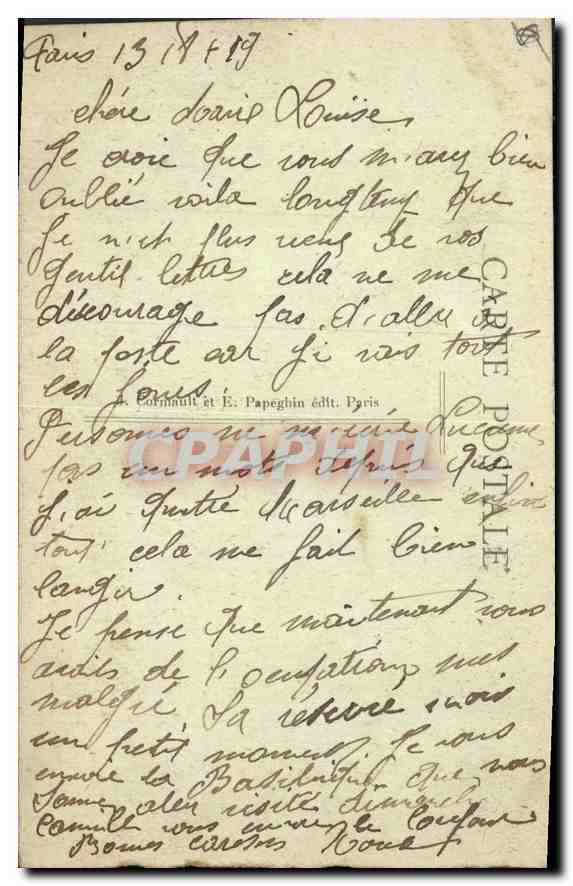 Paris 13
chére Marie Louise
Je croie que vous m'avez bien
oublié voila longtemp que
Je n'est plus reçus de vos
gentil lettres cela ne me
décourage pas d'aller a
la poste car Ji vais tout
les Jours.
Cormault et E. Papeghin édit. Paris
CARTE POSTALE
Personnes ne Lucienne
pas un mots depuis que
J'ai quitté Marseille enfin
tout cela me fait bien
langir.
Je pense que maintenant vous
avais de l'ocupations mes
malgré sa réservé mois
un petit moment. Je vous
envoie la Basilique que nous
somme aller visité dimanche
Camille vous envoie le
Bonnes caresses
CPAPHIL